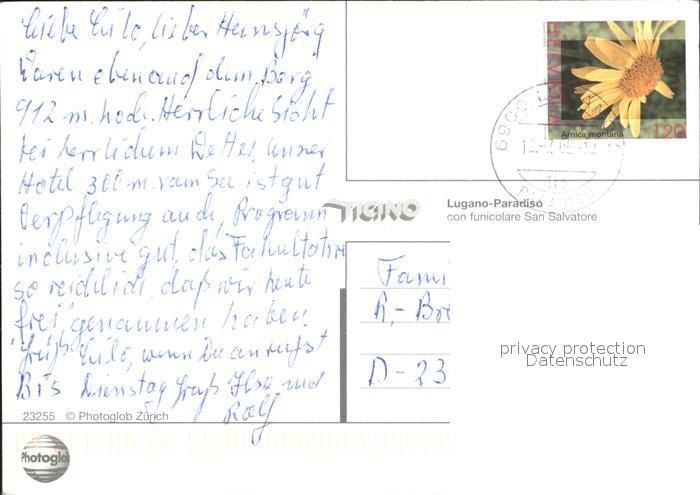 Liebe Lilo, lieber Heinzjörg
Waren eben auf dem Berg
912 m. hoch. Herrliche Sicht
bei herrlichem Wetter, unser
Hotel 300 m. vom See ist gut
Verpflegung auch, Programm
inclusive gut, das Fakultative
so reichlich, daß wir heute
"frei" genommen haben.
Lilo, wenn Du anrufst
Bis Dienstag Gruß Ilse und
Rolf
23255 © Photoglob Zürich
Photoglob
HELVETIA
Arnica montana
120
6900
TICINO
Lugano-Paradiso
con funicolare San Salvatore
Fami
R.-Bre
D-23
privacy protection
Datenschutz